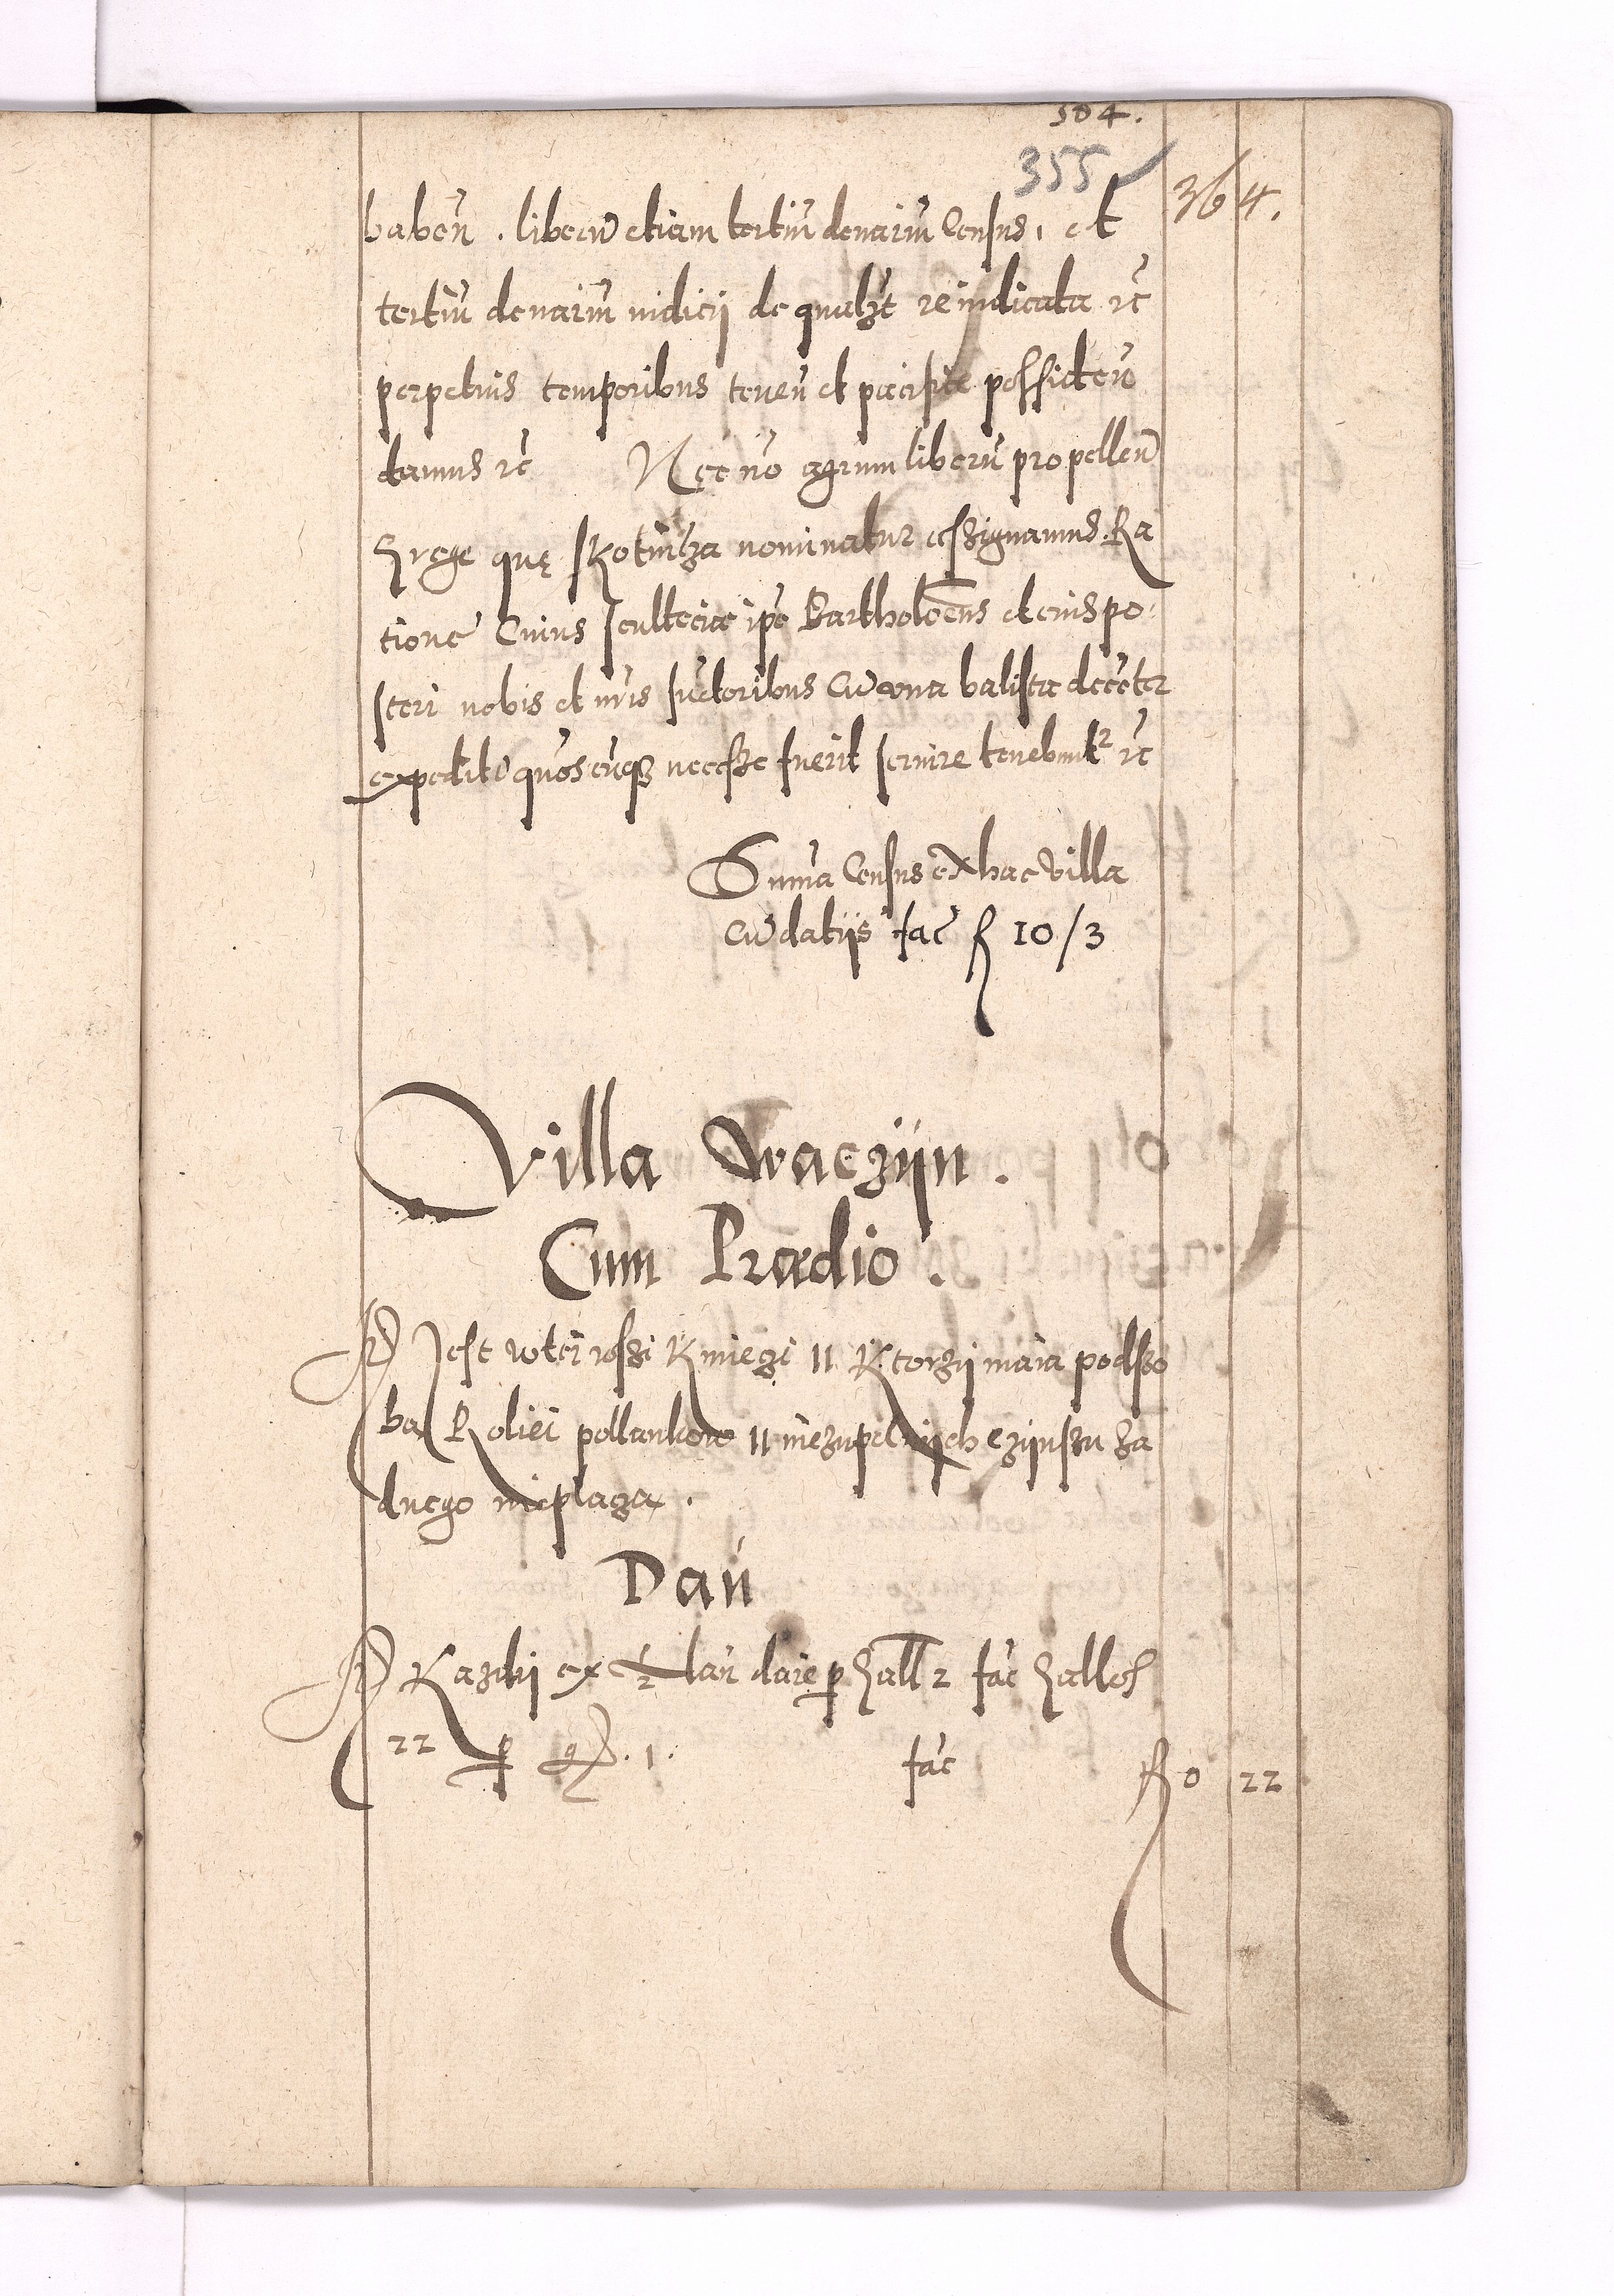 504.
355
364.
haben̄ . liberū etiam tertiū denariū Census , et
tertiū denariū iudicij de qualꝫt re iudicata ꝛc̄
perpetuis temporibus tenen̄ et pacifice possiden̄
damus ꝛc̄ Nęc nō agrum liberū pro pellen̄
grege quę skotnicza nominatur asßignamus. Ra
tione Cuius scultecię ip̄e Bartholoēus et eius po
steri nobis et nr̄is suc̄toribus Cū una balista decēter
expedita quos cūqꝫ necesße fuerit seruire tenebunt² ꝛc̄
Sum̄a Census ex hac villa
Cū datijs fac̄ fl 10/3
Villa Waczijn .
Cum Prædio .
Jest wtei wsżi Kmieczi 11. Ktorzij maia podszo
ba Roliei pollankow 11 niezupelnijch czijnszu ża
dnego nieplacza .
Dań
Kazdij ex ½ łan daie p Gall 2 fac̄ Gallos
22 p g. 1. fac̄ fl 0 22